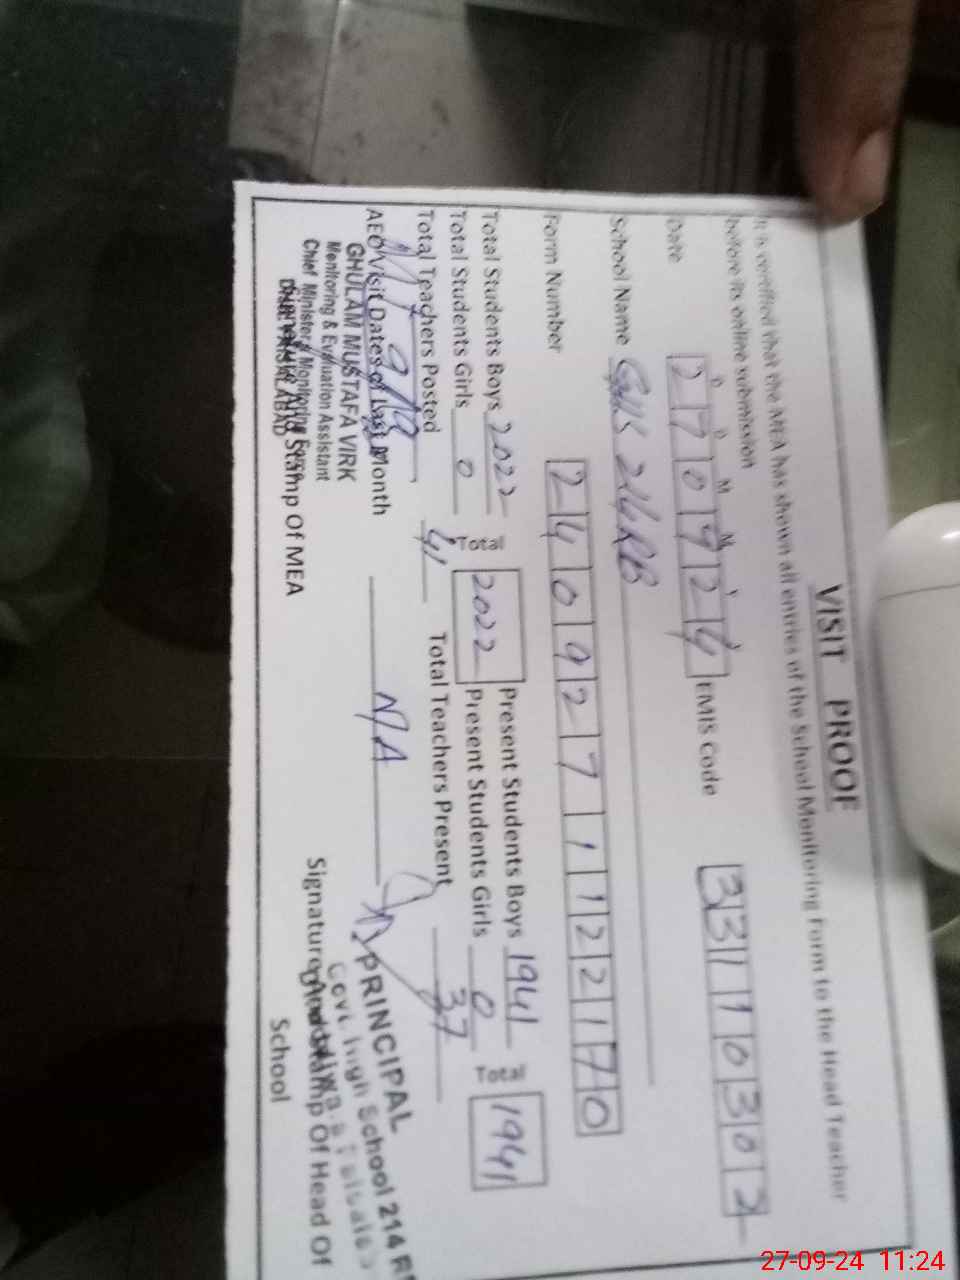 VISIT PROOF
It is certified that the MEA has shown all entries of the School Monitoring Form to the Head Teacher
before its online submission
D D M M Y
Date 270924 EMIS Code 33110302
School Name GHS 214RB
Form Number 2409271122170
Total Students Boys 2022 Total 2022 Present Students Boys 1941 Total 1941
Total Students Girls 0 Present Students Girls 0
Total Teachers Posted 41 Total Teachers Present 37
AEO Visit Dates of Last Month N/A
GHULAM MUSTAFA VIRK
Monitoring & Evaluation Assistant
Chief Minister's Monitoring Force
Distt. FAISALABAD
Stamp Of MEA
PRINCIPAL
Govt. High School 214 R
Signature And Stamp Of Head Of
School
27-09-24 11:24